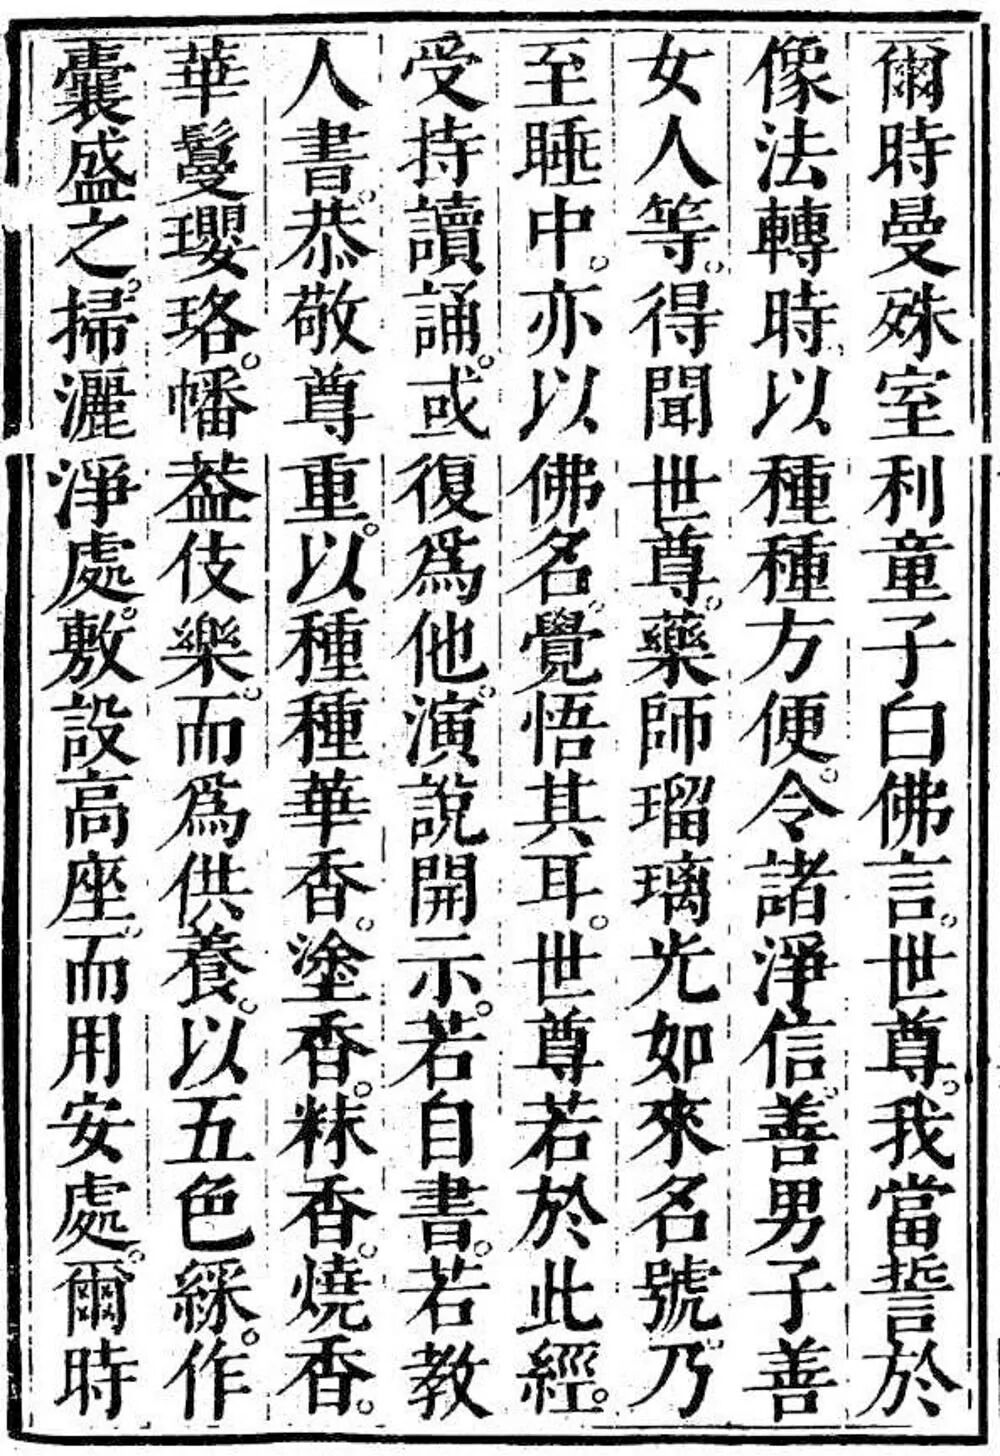 爾時曼殊室利童子白佛言。世尊。我當誓於
像法轉時、以種種方便。令諸淨信。善男子善
女人等。得聞世尊。藥師瑠璃光如來名號。乃
至睡中。亦以佛名。覺悟其耳。世尊若於此經。
受持讀誦。或復爲他。演說開示。若自書。若教
人書。恭敬尊重。以種種華香。塗香。粖香。燒香。
華鬘瓔珞。幡葢伎樂。而爲供養。以五色綵。作
囊盛之。掃灑淨處。敷設高座。而用安處。爾時